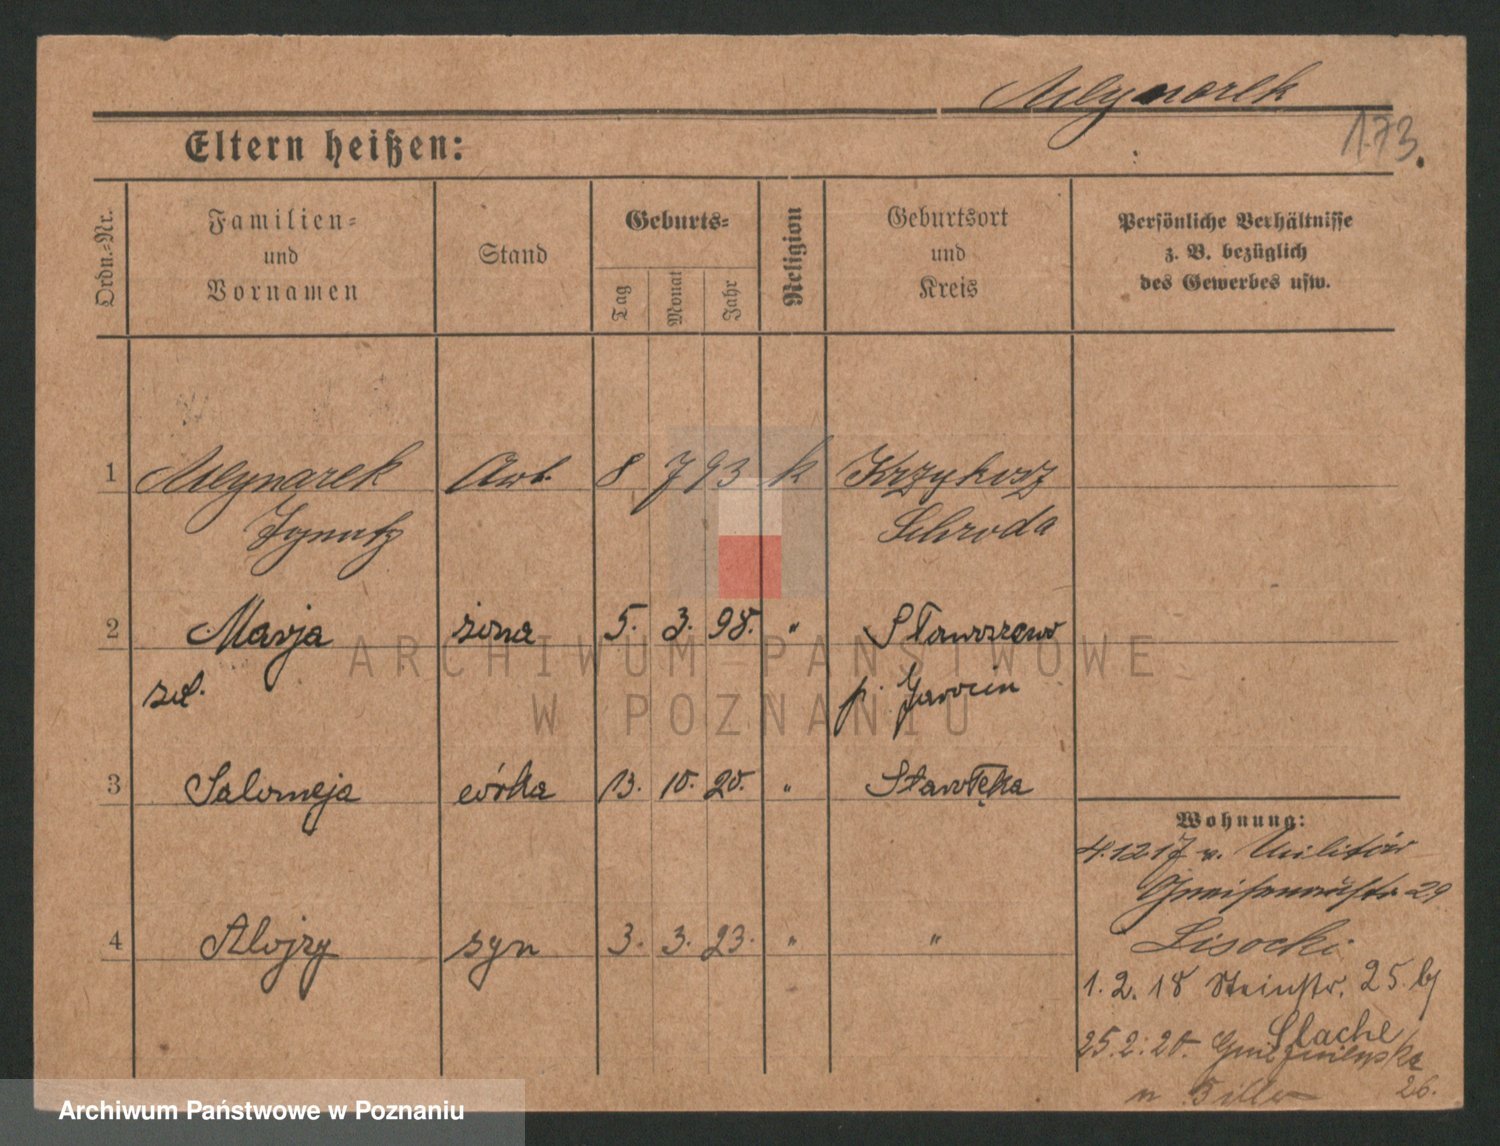 Mlynarek
173.
Eltern heißen:
Ordn.-Nr.
Familien-
und
Vornamen
Stand
Geburts-
Tag
Monat
Jahr
Religion
Geburtsort
und
Kreis
Persönliche Verhältnisse
z. B. bezüglich
des Gewerbes usw.
1 Mlynarek Arb. 8 7 93 k Krzykosz
Ignatz Schroda
2 Marja żona 5. 3. 98. "
zd. p. Jarocin
3 Salomeja córka 13. 10. 20. " Starołęka
4 Alojzy syn 3. 3. 23. " "
Wohnung:
4.12 17 v. Militär
Gneisenaustr 29
Lisocki
1. 2. 18 Steinstr. 25. b/
Stache
25.2.20. Gnieźnieńska
26.
ARCHIWUM PAŃSTWOWE
W POZNANIU
Archiwum Państwowe w Poznaniu